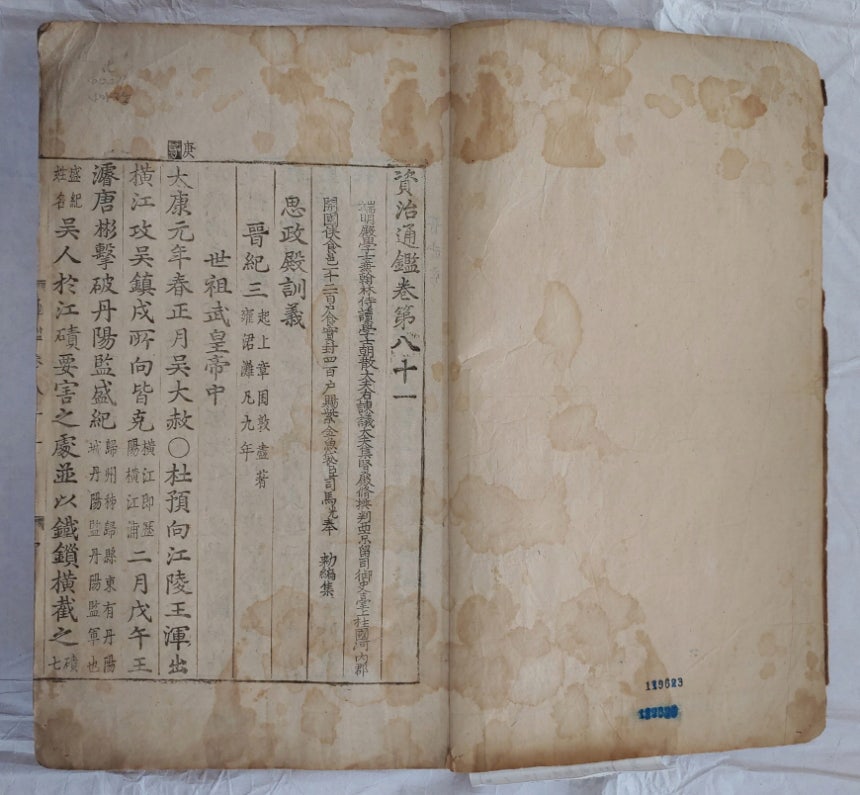 資治通鑑卷第八十一
端明殿學士兼翰林侍讀學士朝散大夫右諫議大夫集賢殿修撰判西京留司御史臺上柱國河內郡
開國侯食邑一千三百户食實封四百户賜紫金魚袋臣司馬光奉 勑編集
思政殿訓義
晉紀三 起上章困敦盡著雍涒灘凡九年
世祖武皇帝中
庚子
太康元年春正月吳大赦○杜預向江陵王渾出
橫江攻吳鎮戍所向皆克橫江即歷陽橫江浦二月戊午王
濬唐彬擊破丹陽監盛紀歸州秭歸縣東有丹陽城丹陽監丹陽監軍也
盛紀姓名吳人於江磧要害之處並以鐵鎖橫截之磧七
119623